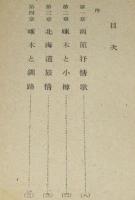 目次
序
第一章 函館抒情歌
第二章 啄木と小樽
第三章 北海道旅情
第四章 啄木と釧路